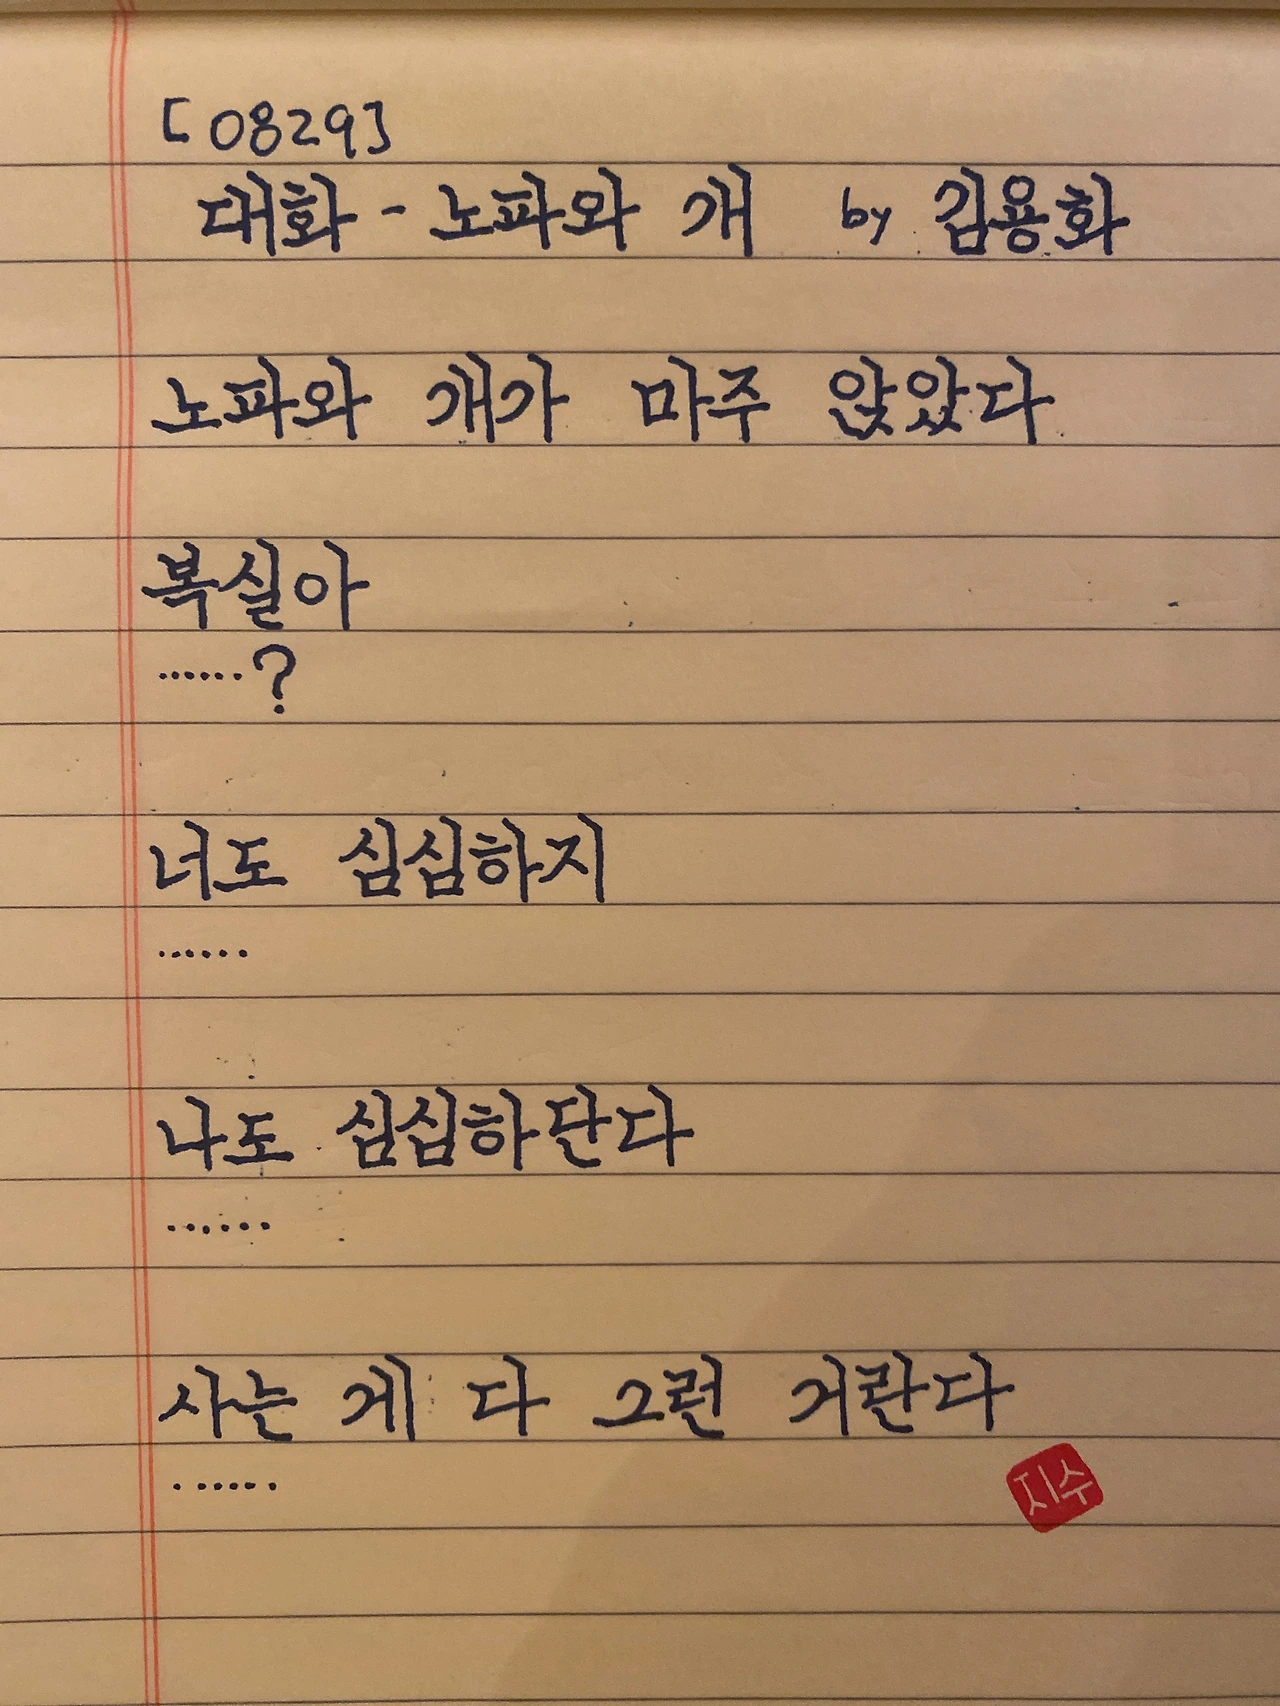 [0829]
대화 - 노파와 개 by 김용화
노파와 개가 마주 앉았다
복실아
......?
너도 심심하지
......
나도 심심하단다
......
사는 게 다 그런 거란다
......
지수